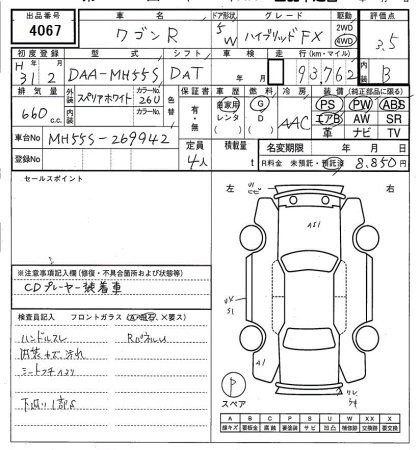 出品番号 車名 ドア形状 グレード 駆動 評価点
4067 ワゴンR 5W ハイブリッドFX 2WD 4WD 3.5
初度登録 型式 シフト 車検 走行(km・マイル) 内装
H31 2月 DAA-MH55S DAT 年 月 93,762 B
排気量 外装 カラーNo. 色替 保証書 車歴 燃料 冷房 装備(純正部品に限る)
660 c.c. スペリアホワイト 26U 有・無 自家用 レンタ G D AAC PS PW ABS
内装 カラーNo. エアB AW SR
革 ナビ TV
車台No MH55S-269942 定員 4人 積載量 t 名変期限 年 月 日
登録No R料金 未預託・預託済 8,850円
セールスポイント
左 右
A51
※注意事項記入欄(修復・不具合箇所および状態等)
CDプレーヤー装着車
検査員記入 フロントガラス(、×要ス)
ハンドルスレ
内装キズ、汚れ
A1
P
スペア
A B C P S U W X XX
線キズ 要板金 腐蝕 要塗装 サビ 凹凸 補修跡 交換跡 要交換